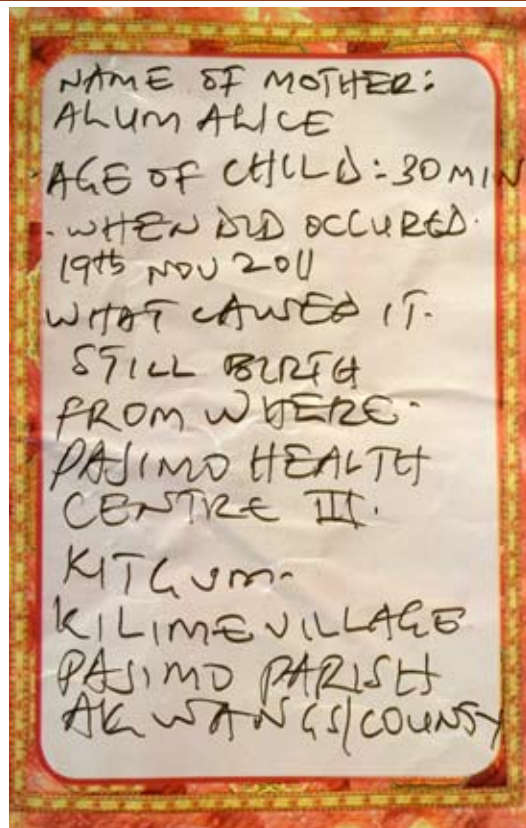 NAME OF MOTHER:
ALUM ALICE
AGE OF CHILD: 30 MIN
WHEN DID OCCURED.
19th NOV 2011
WHAT CAUSED IT.
STILL BIRTH
FROM WHERE-
PAJIMO HEALTH
CENTRE III.
KITGUM-
KILIME VILLAGE
PAJIMO PARISH
AKWANG S/COUNTY